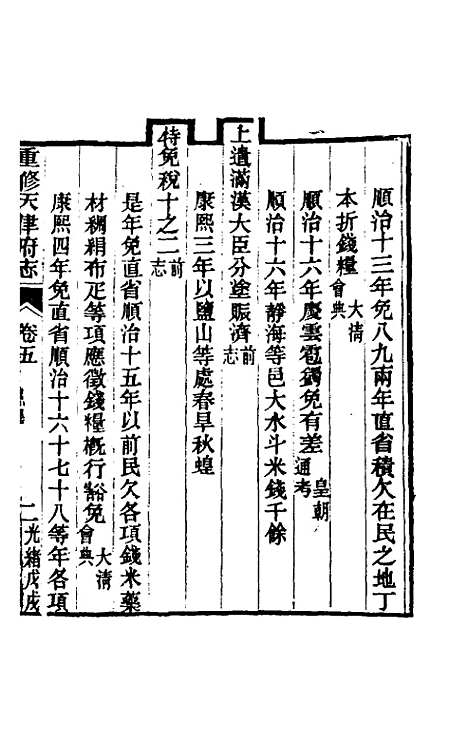 順治十三年免八九兩年直省積欠在民之地丁
本折錢糧大清會典
順治十六年慶雲雹蠲免有差皇朝通考
順治十六年靜海等邑大水斗米錢千餘
上遣滿漢大臣分塗賑濟前志
康熙三年以鹽山等處春旱秋蝗
特免稅十之二前志
是年免直省順治十五年以前民欠各項錢米藥
材綢絹布疋等項應徵錢糧槪行豁免大清會典
康熙四年免直省順治十六十七十八等年各項
重修天津府志
卷五
二
光緒戊戌